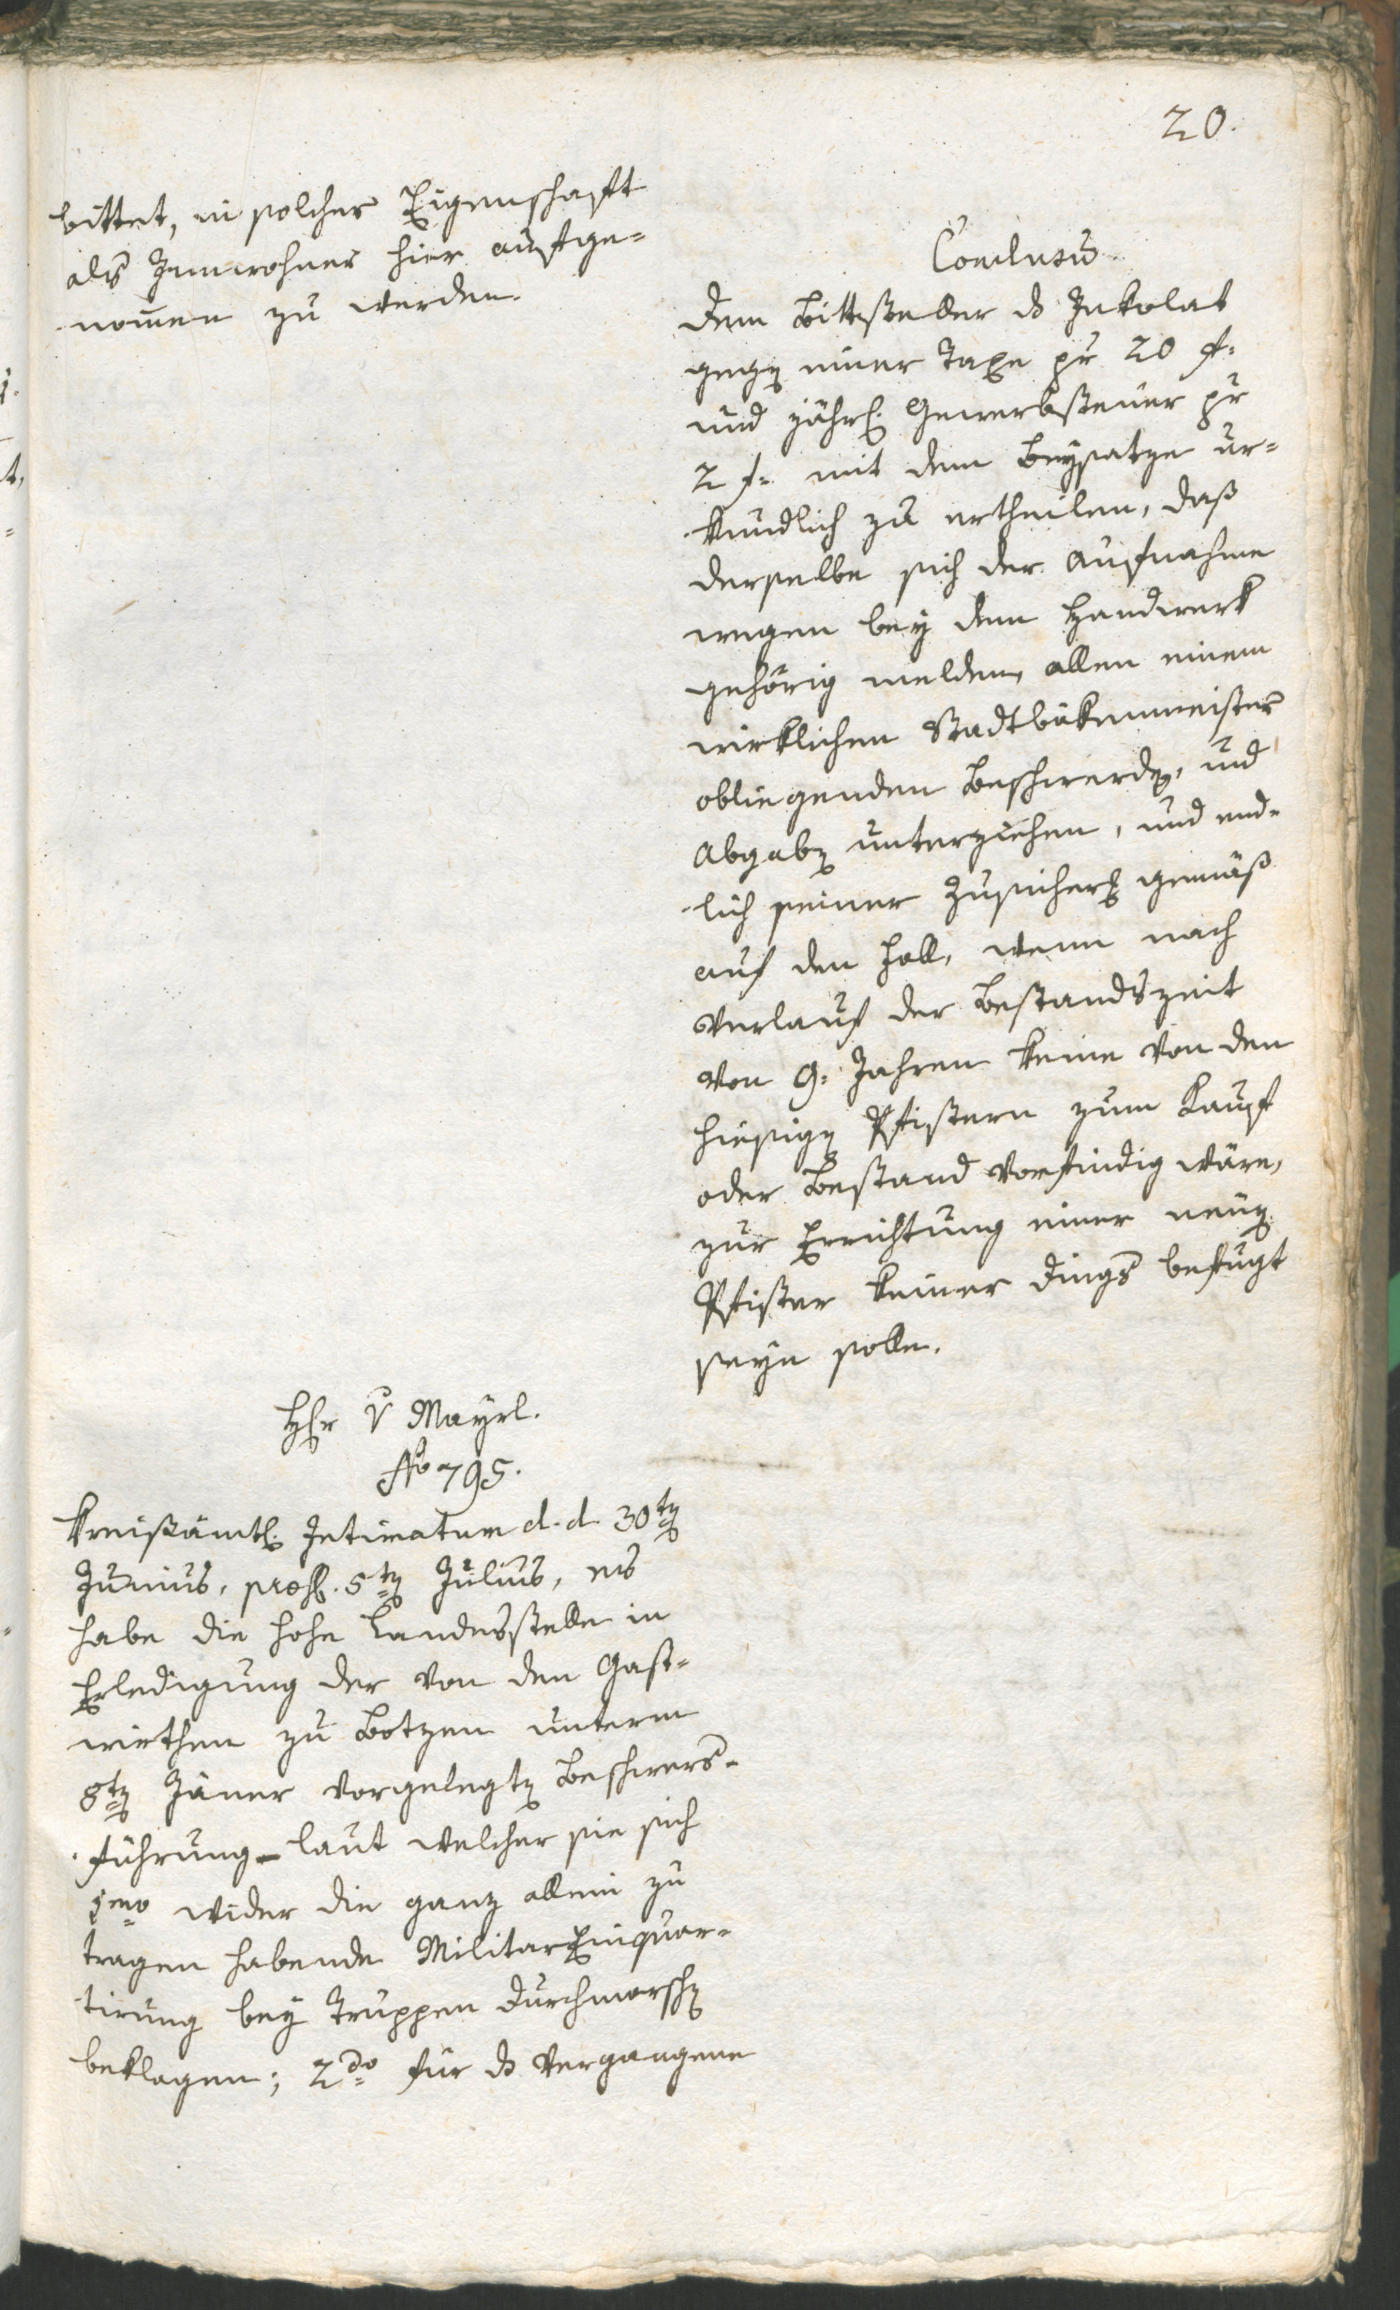 20.
bittet, in solcher Eigenschaft
als Innwohner hier aufge=
nomen zu werden.
Conclusu.
Dem Bittsteller ds Inkolat
gegen einer Taxe pr 20 f.
und jährl. Gewerbsteuer pr
2 f. mit dem Beysatze ur=
kundlich zu ertheilen, daß
derselbe sich der Aufnahme
wegen bey dem Handwerk
gehörig melden, allen einem
wirklichen Stadtbäkenmeister
obliegenden Beschwerden, und
Abgaben unterziehen, und end=
lich seiner Zusicherg gemäß
auf den Fall, wenn nach
Verlauf der Bestandszeit
von 9. Jahren keine von den
hiesigen Pfistern zum Kauf
oder Bestand vorfindig wäre,
zur Errichtung einer neuen
Pfister keiner Dings befugt
seyn solle.
Hr v Mayrl.
No 795.
Kreisämtl. Intimatum d. d. 30ten
Junius, præs. 5ten Julius, es
habe die hohe Landesstelle in
Erledigung der von den Gast=
wirthen zu Botzen unterm
8ten Jäner vorgelegten Beschwers=
führung – laut welcher sie sich
1mo wider die ganz allein zu
tragen habende Militar Einquar=
tirung bey Truppen Durchmarschen
beklagen; 2do für ds vergangene